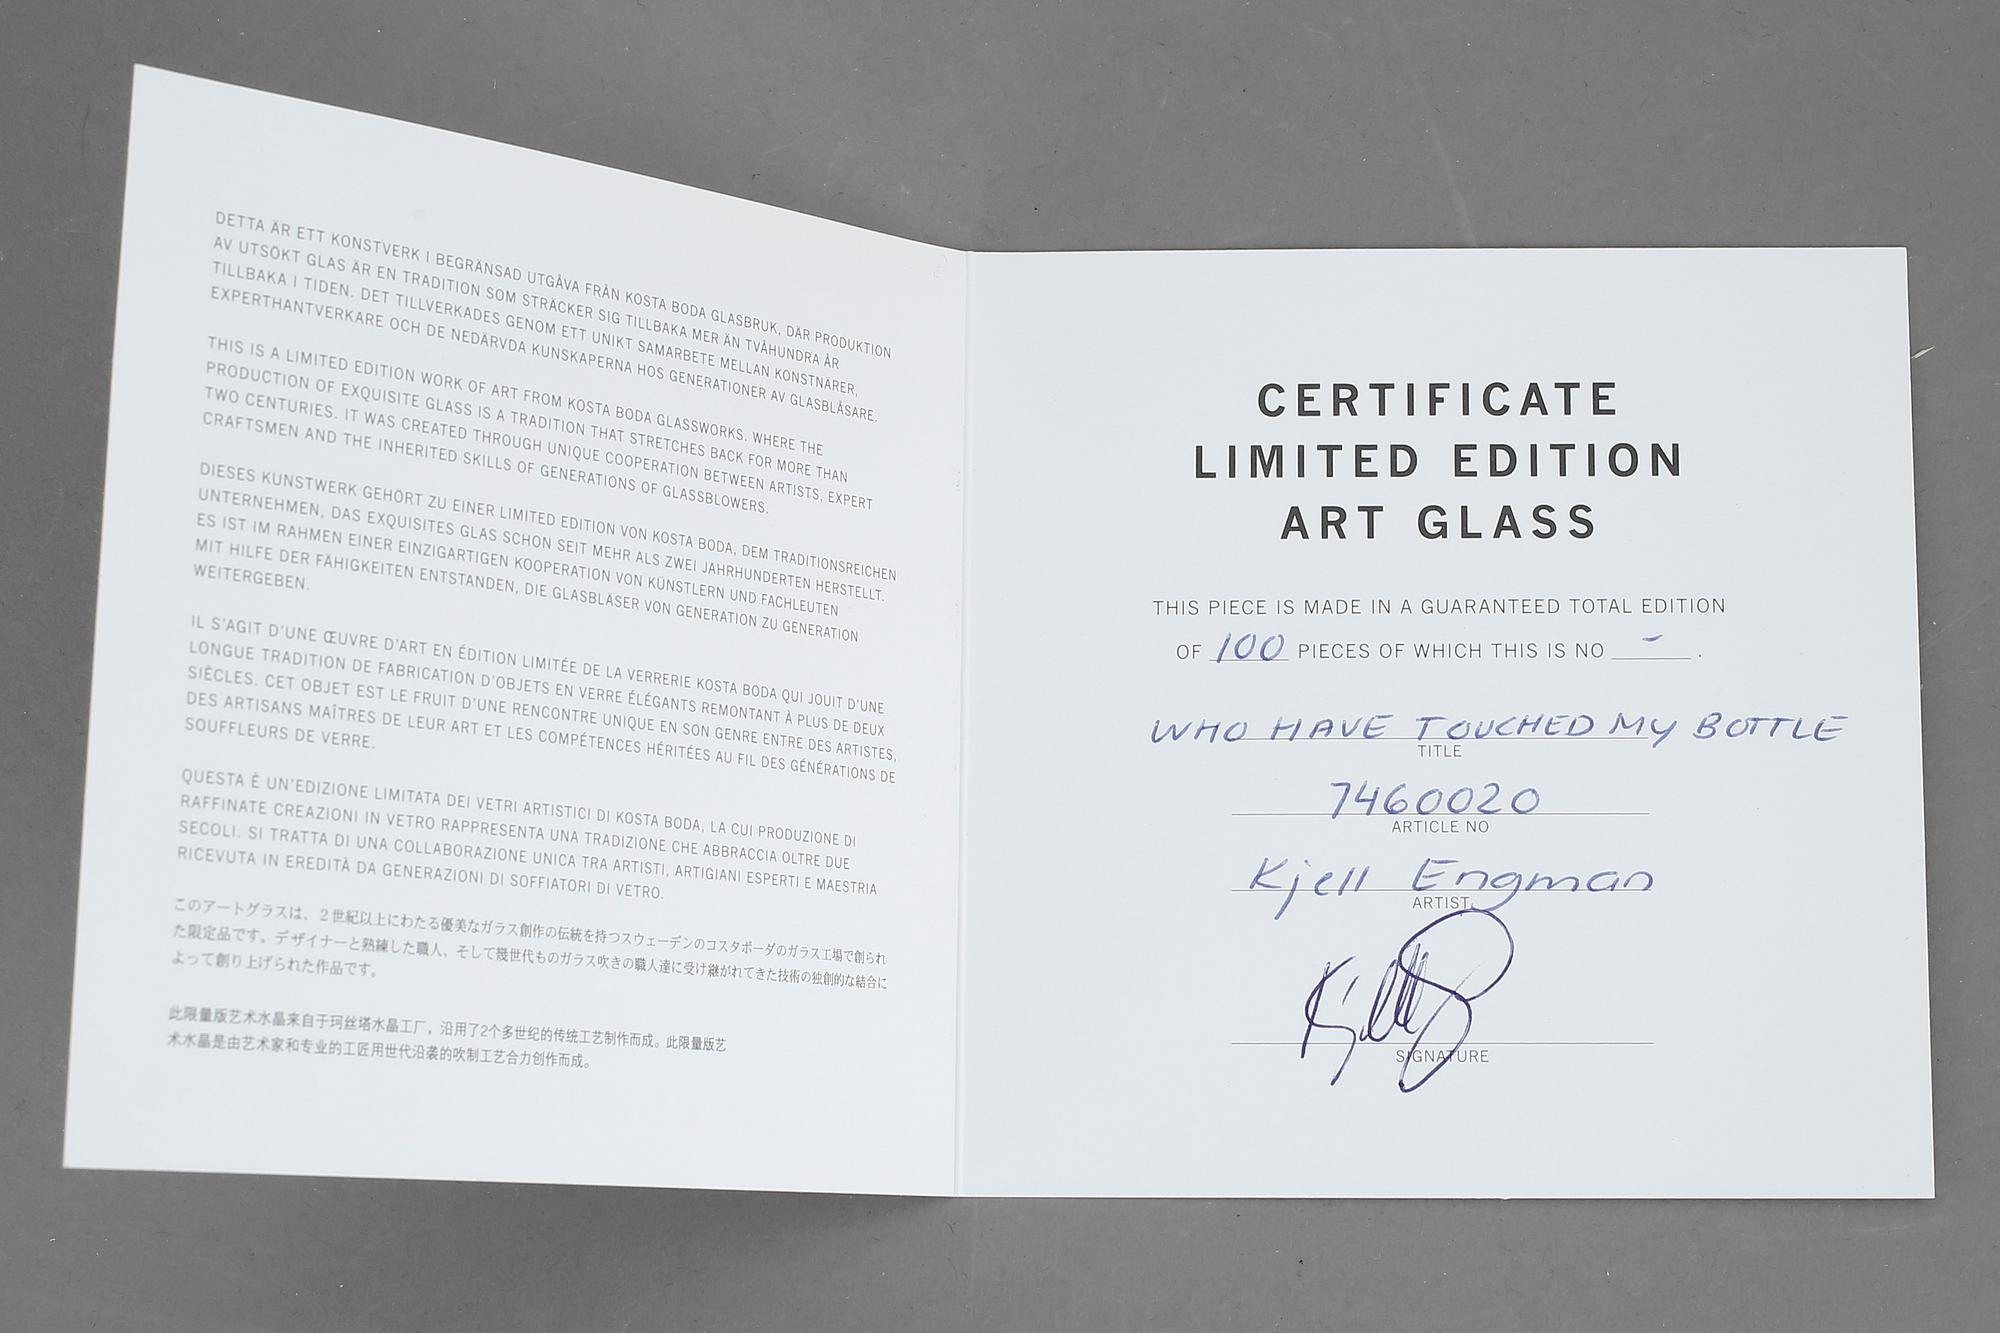 DETTA ÄR ETT KONSTVERK I BEGRÄNSAD UTGÅVA FRÅN KOSTA BODA GLASBRUK, DÄR PRODUKTION
AV UTSÖKT GLAS ÄR EN TRADITION SOM STRÄCKER SIG TILLBAKA MER ÄN TVÅHUNDRA ÅR
TILLBAKA I TIDEN. DET TILLVERKADES GENOM ETT UNIKT SAMARBETE MELLAN KONSTNÄRER,
EXPERTHANTVERKARE OCH DE NEDÄRVDA KUNSKAPERNA HOS GENERATIONER AV GLASBLÅSARE.
THIS IS A LIMITED EDITION WORK OF ART FROM KOSTA BODA GLASSWORKS. WHERE THE
PRODUCTION OF EXQUISITE GLASS IS A TRADITION THAT STRETCHES BACK FOR MORE THAN
TWO CENTURIES. IT WAS CREATED THROUGH UNIQUE COOPERATION BETWEEN ARTISTS, EXPERT
CRAFTSMEN AND THE INHERITED SKILLS OF GENERATIONS OF GLASSBLOWERS.
DIESES KUNSTWERK GEHÖRT ZU EINER LIMITED EDITION VON KOSTA BODA, DEM TRADITIONSREICHEN
UNTERNEHMEN, DAS EXQUISITES GLAS SCHON SEIT MEHR ALS ZWEI JAHRHUNDERTEN HERSTELLT.
ES IST IM RAHMEN EINER EINZIGARTIGEN KOOPERATION VON KÜNSTLERN UND FACHLEUTEN
MIT HILFE DER FÄHIGKEITEN ENTSTANDEN, DIE GLASBLÄSER VON GENERATION ZU GENERATION
WEITERGEBEN.
IL S'AGIT D'UNE ŒUVRE D'ART EN ÉDITION LIMITÉE DE LA VERRERIE KOSTA BODA QUI JOUIT D'UNE
LONGUE TRADITION DE FABRICATION D'OBJETS EN VERRE ÉLÉGANTS REMONTANT À PLUS DE DEUX
SIÈCLES. CET OBJET EST LE FRUIT D'UNE RENCONTRE UNIQUE EN SON GENRE ENTRE DES ARTISTES,
DES ARTISANS MAÎTRES DE LEUR ART ET LES COMPÉTENCES HÉRITÉES AU FIL DES GÉNÉRATIONS DE
SOUFFLEURS DE VERRE.
QUESTA È UN'EDIZIONE LIMITATA DEI VETRI ARTISTICI DI KOSTA BODA, LA CUI PRODUZIONE DI
RAFFINATE CREAZIONI IN VETRO RAPPRESENTA UNA TRADIZIONE CHE ABBRACCIA OLTRE DUE
SECOLI. SI TRATTA DI UNA COLLABORAZIONE UNICA TRA ARTISTI, ARTIGIANI ESPERTI E MAESTRIA
RICEVUTA IN EREDITÀ DA GENERAZIONI DI SOFFIATORI DI VETRO.
このアートグラスは、２世紀以上にわたる優美なガラス創作の伝統を持つスウェーデンのコスタボーダのガラス工場で創られ
た限定品です。デザイナーと熟練した職人、そして幾世代ものガラス吹きの職人達に受け継がれてきた技術の独創的な結合に
よって創り上げられた作品です。
此限量版艺术水晶来自于珂丝塔水晶工厂，沿用了2个多世纪的传统工艺制作而成。此限量版艺
术水晶是由艺术家和专业的工匠用世代沿袭的吹制工艺合力创作而成。
CERTIFICATE
LIMITED EDITION
ART GLASS
THIS PIECE IS MADE IN A GUARANTEED TOTAL EDITION
OF 100 PIECES OF WHICH THIS IS NO - .
WHO HAVE TOUCHED MY BOTTLE
TITLE
7460020
ARTICLE NO
Kjell Engman
ARTIST
SIGNATURE